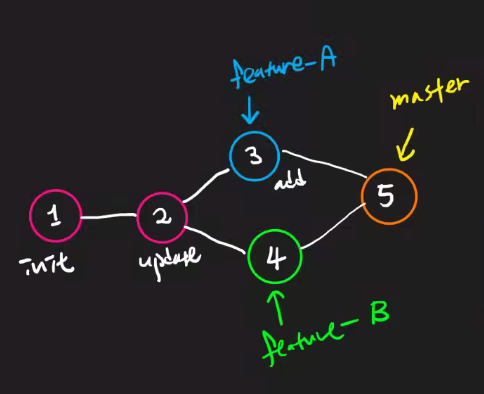 feature-A
master
3
add
5
1
2
init
update
4
feature-B